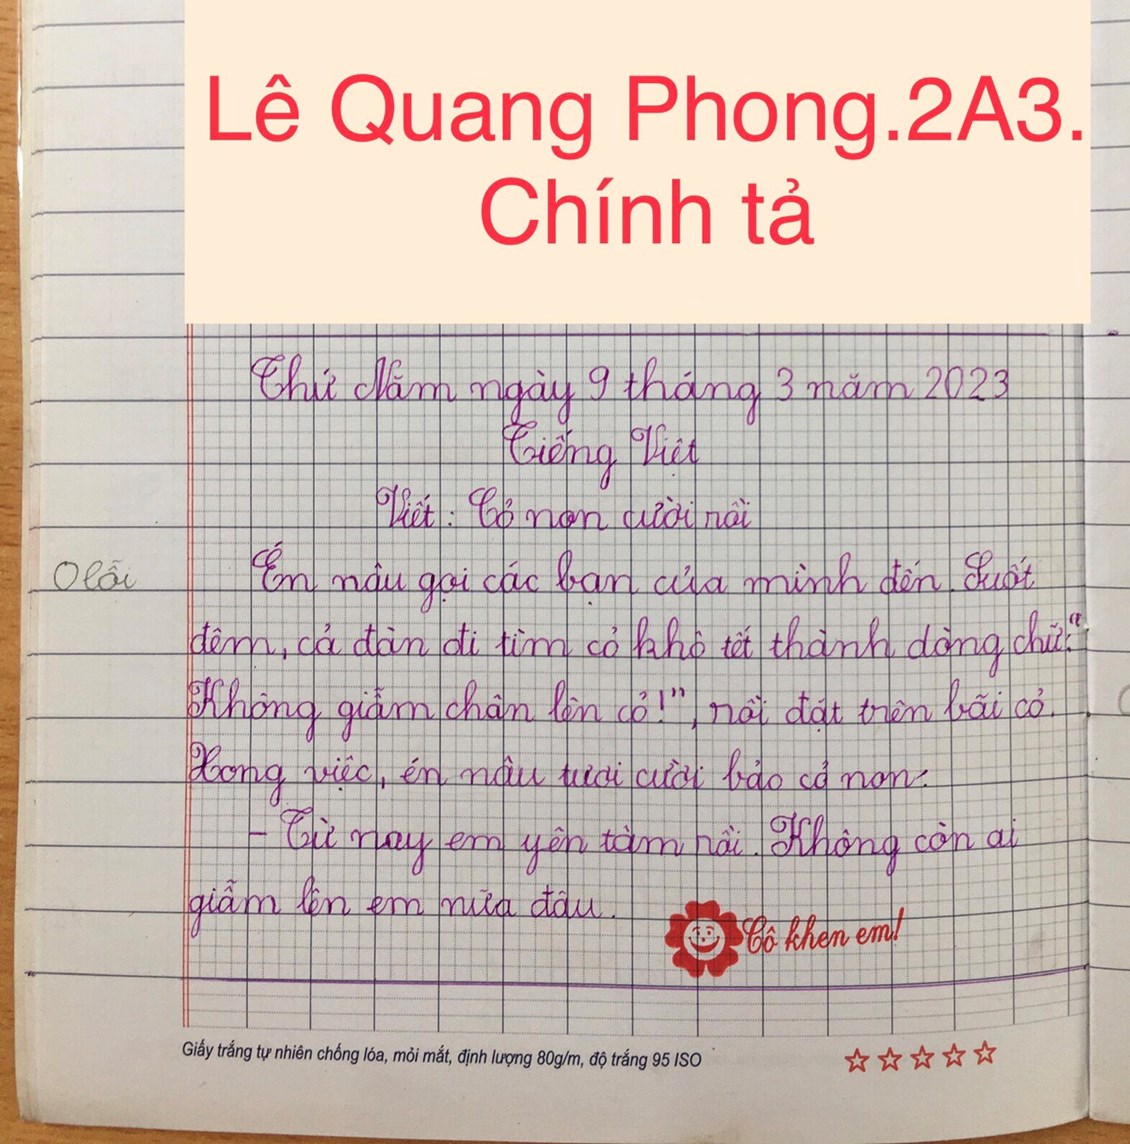 Lê Quang Phong.2A3.
Chính tả
Thứ Năm ngày 9 tháng 3 năm 2023
Tiếng Việt
Viết : Cỏ non cười rồi
0 lỗi
Én nâu gọi các bạn của mình đến. Suốt
đêm, cả đàn đi tìm cỏ khô tết thành dòng chữ: "
Không giẫm chân lên cỏ!", rồi đặt trên bãi cỏ.
Xong việc, én nâu tươi cười bảo cỏ non:
- Từ nay em yên tâm rồi. Không còn ai
giẫm lên em nữa đâu.
Cô khen em!
Giấy trắng tự nhiên chống lóa, mỏi mắt, định lượng 80g/m, độ trắng 95 ISO